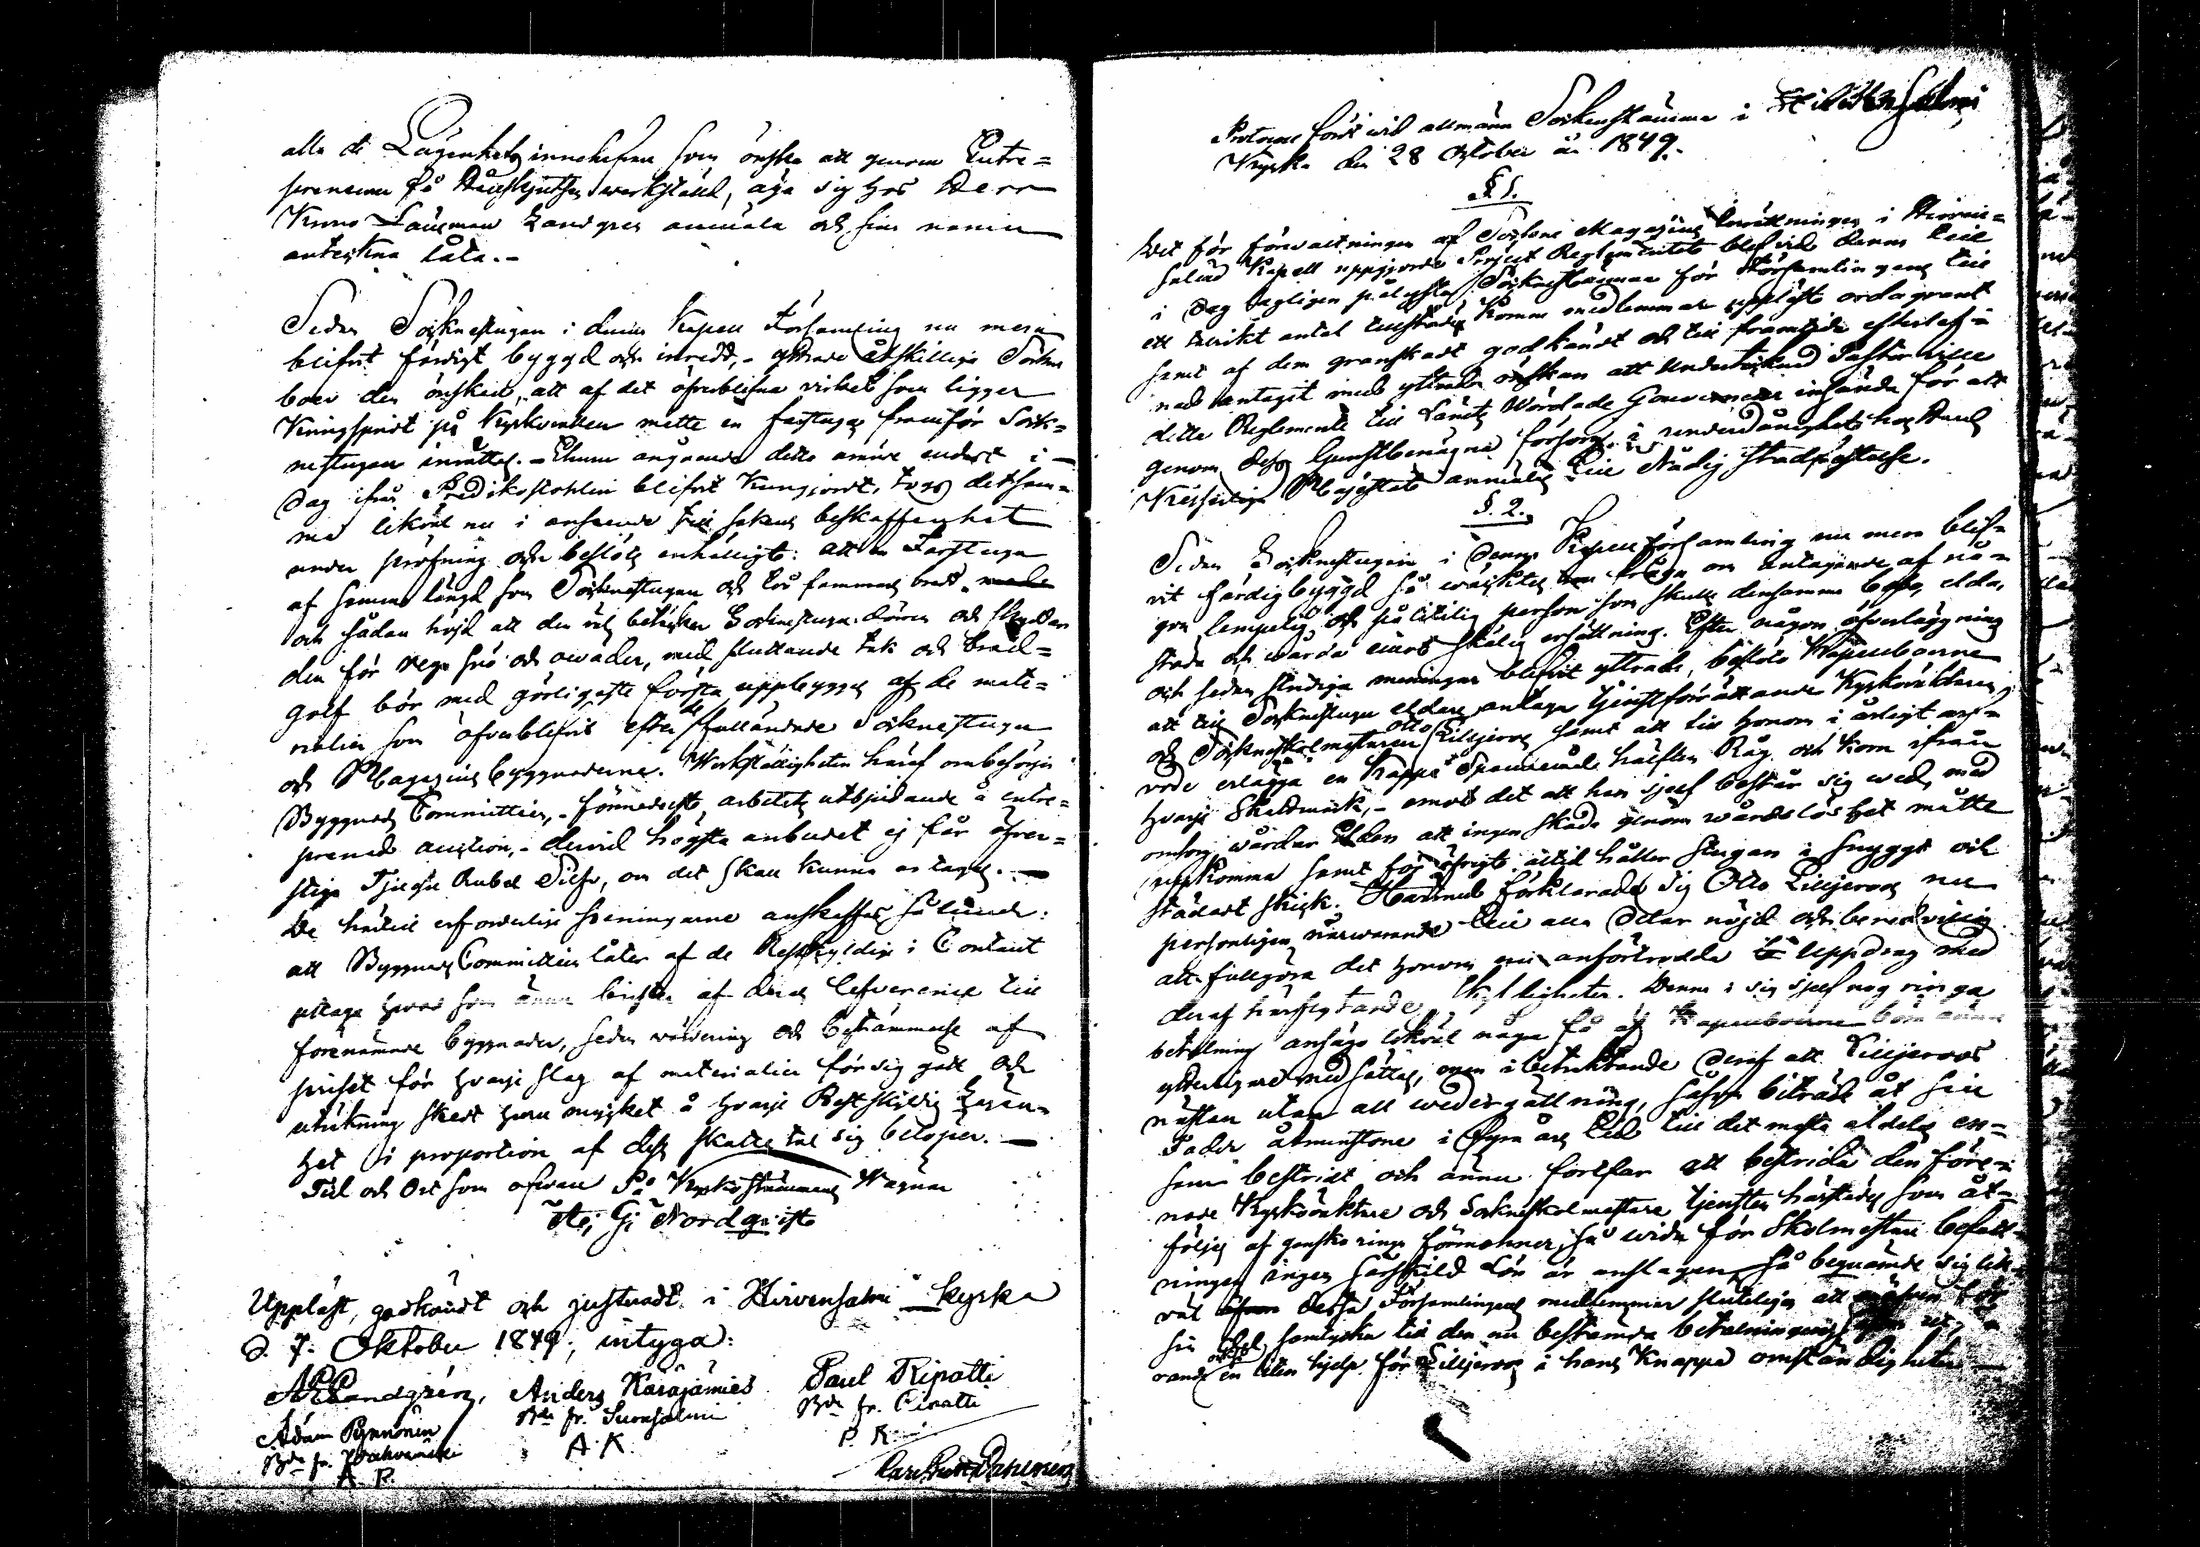 alla de Lägenhets innehafvare som önska att genom Entre=
prenaden få Hållskjutsen verkställd, äga sig hos Herr
Krono Länsman Landgren anmäla och sina namn
anteckna låta.-
Sedan Sockenstugan i denna Kapell Församling nu mera
blifvit färdigt byggd och inredd,- yttrade åtskillige Socken
boer den önskan, att af det öfverblifna virket som ligger
kringspridt på Kyrkbacken måtte en farstuga framför Sock=
nestugan inrättas.- Ehuru angående detta ämne endast i
dag ifrån Predikostolen blifvit kungjordt, togs detsam=
ma likväl nu i anseende till sakens beskaffenhet
under pröfning och beslöts enhälligt: att en Farstuga
af samma längd som Sockenstugan och två famnars bredd
och sådan höjd att den väl betäcker Sockenstugu dörren och skyddar
den för regn snö och oväder, med sluttande tak och bräd=
golf bör med görligaste första uppbyggas af de mate=
rialier som öfverblifvit efter de fulländade Socknestugu
och Magazins byggnaderne. Verkställigheten häraf ombesörjer
Byggnads Committeen,- förmedelst arbetets utbjudande å entre=
prenad auction,- dervid högsta anbudet ej får öfver=
stiga Tjugu Rubel Silfver, om det skall kunna antagas.-
De härtill erforderliga penningarne anskaffas sålunda:
att Byggnads Committeen låter af de Restskyldige i Contant
uttaga hvad som ännu brister af deras leverence till
förenämnde byggnader, sedan värdering och bestämmelse af
priset för hvarje slag af materialier försiggått och
uträkning skett huru mycket å hvarje Restskyldig Lägen=
het i proportion af dess skattetal sig belöper.-
Tid och Ort som ofvan På Kyrkostämmans Vägnar
Nordqvist
Uppläst, godkändt och justeradt i Hirvensalmi Kyrka
d. 7. Oktober 1849; intyga:
Landgrén, Anders Käräjämies Paul Ripatti
Adam Pynnönen Bde fr. Suonsalmi Bde fr.
Bde fr. A. K. P. R.
A. P.
Protocoll fördt vid allmänn Sockenstämma i Hirvensalmi
Kyrka den 28 October år 1849.
§ 1.
Det för förvaltningen af Sockne Magazins Inrättningen i Hirven=
salmi Kapell uppgjorde Project Reglementet blef vid denna till
i dag lagligen pålyste Sockenstämma för Församlingens till
ett talrikt antal tillstädes komne medlemmar uppläst ordagrannt
samt af dem granskadt godkändt och till framtida efterlef=
nad antagit med yttrad önskan att Undertecknad Pastor ville
detta Reglemente till Länets Vördade Gouverneur insända för att
genom dess Gunstbenägna försorg i underdånighet hos Hans
Kejserliga Majestät anmälas till Nådig stadfästelse.
§. 2.
Sedan Sockenstugan i denna Kapellförsamling nu mera blif=
vit färdigbyggd så väcktes fråga om antagande af nå=
gon lempelig och pålitelig person som skulle densamma bebo, elda,
städa och vårda emot skälig ersättning. Efter någon öfverläggning
och sedan stridiga meningar blifvit yttrade, beslöto Kapellboerne
att till Sockenstugu eldare antaga tjenstförrättande Kyrkväktaren
och Sockneskolmästaren Otto Lilljeroos samt att till honom i årligt arf=
vode erlägga en Kappe Spannmål hälften Råg och Korn ifrån
hvarje Skattmark,- emot det att han sjelf består sig ved, med
omsorg vårdar Elden att ingen skada genom vårdslöshet måtte
uppkomma samt för öfrigt alltid håller stugan i snyggt och
städadt skick. Härmed förklarade sig Otto Lilljeroos nu
personligen närvarande till alla delar nöjd och beredvillig
att fullgöra det honom nu anförtrodda uppdrag med
deraf härflytande skyldigheter. Denna i sig sjelf nog ringa
betalning ansågo likväl några få af Kapellboerne böra ännu
ytterligare nedsättas, men i betraktande deraf att Lilljeroos
nästan utan all vedergällning, såsom biträde åt sin
Fader åtminstone i Fyra års tid till det mesta aldeles en=
sam bestridt och ännu fortfar att bestrida den före=
nade Kyrkväktare och Sockneskolmästare tjensten härstädes som åt=
följes af ganska ringa förmohner, så vida för Skolmästare befatt=
ningen ingen särskild Lön är anslagen, så beqvämde sig lik=
väl dessa Församlingens medlemmar slutligen att
sin samtycka till den nu bestämda betalningen
vande en liten hjelp för Lilljeroos i hans Knappa omständigheter.